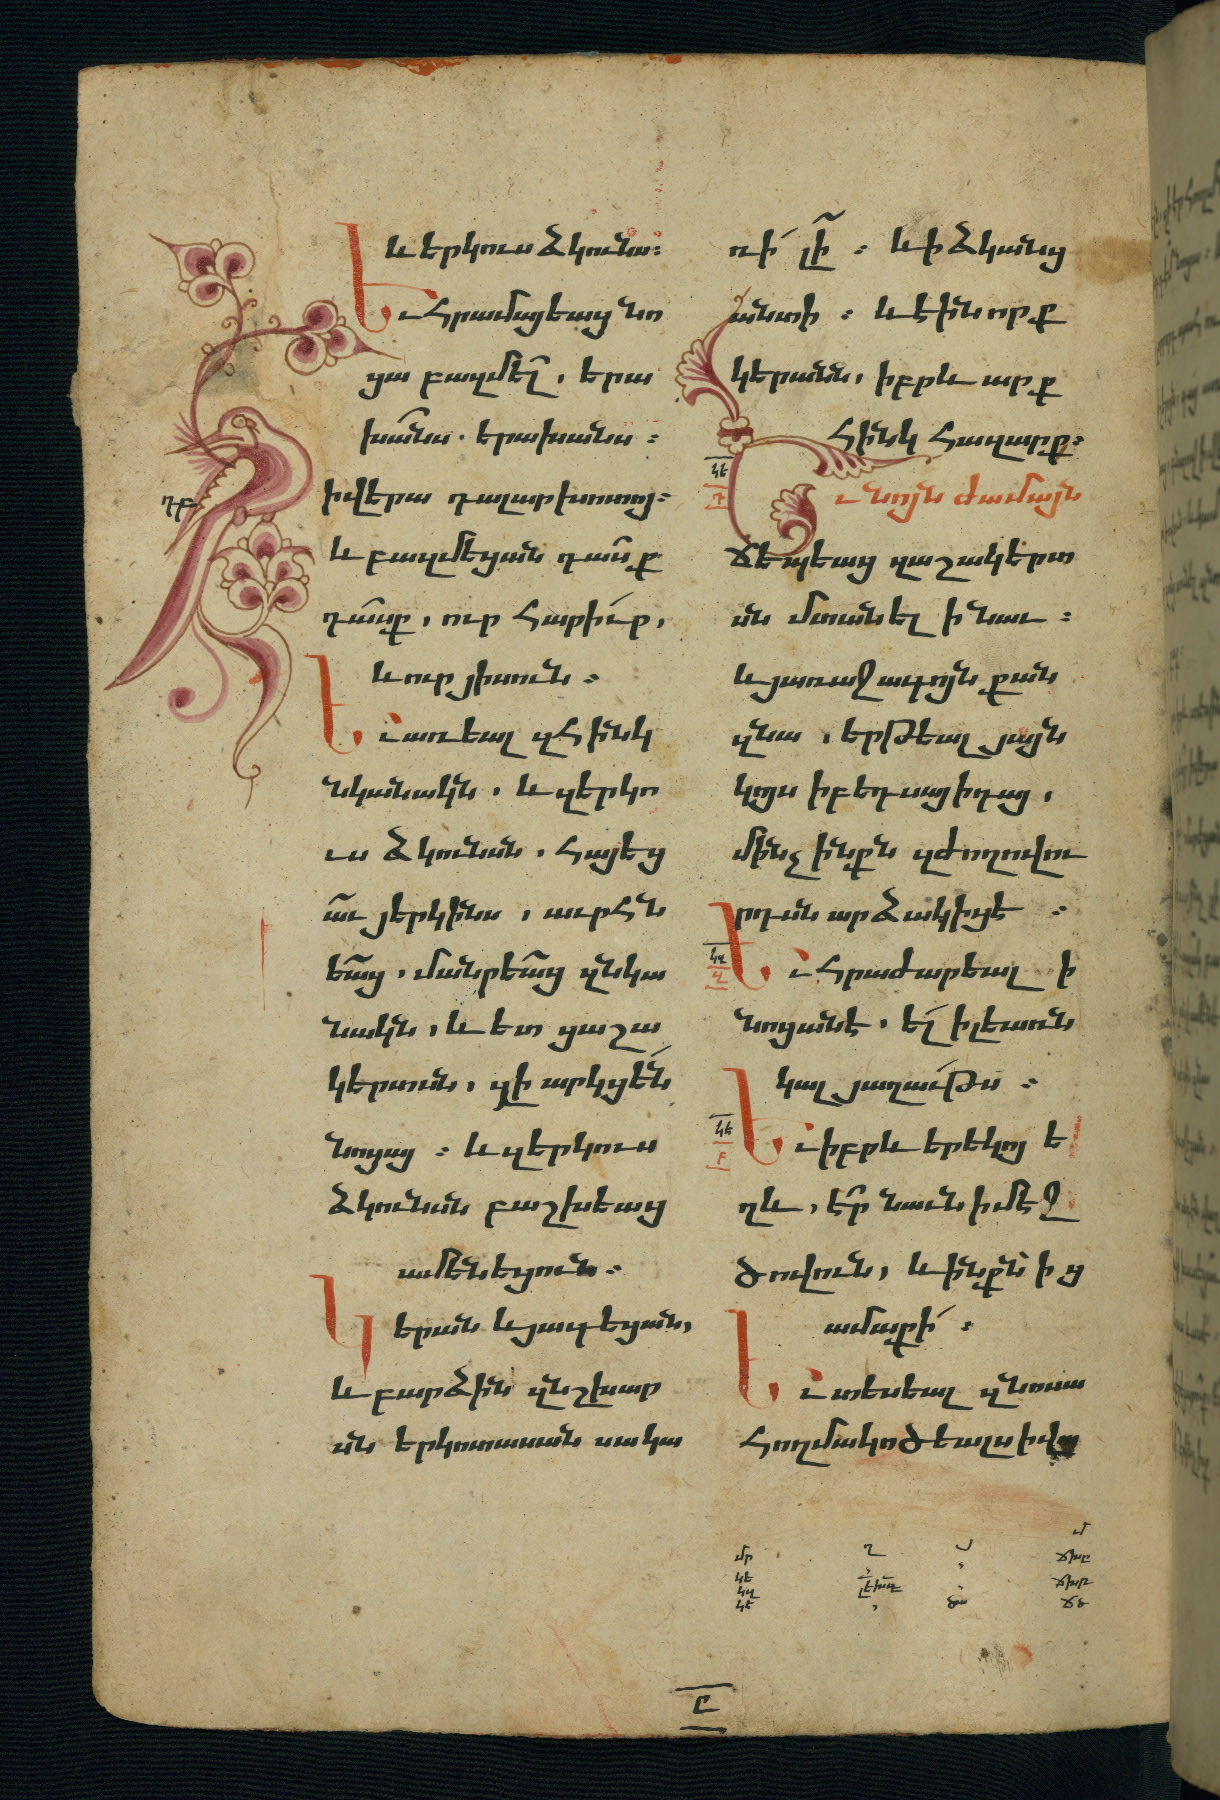 և երկուս ձկունս։
Եւ հրամայեաց նո
ցա բազմել, երա
խանս. երախանս։
ի վերա դալար խոտոյ։
և բազմեցան դասք
դասք, ուր հարիւր,
և ուր յիսուն։
Եւ առեալ զհինկ
նկանակն, և զերկո
ւս ձկունսն, հայեց
աւ յերկինս, աւրհն
եաց, մանրեաց զնկա
նակն, և ետ ցաշա
կերտսն, զի արկցեն
նոցայ։ և զերկուս
ձկունսն բաշխեաց
ամենեցուն։
Կերան և յագեցան,
և բարձին զնշխար
սն երկոտասան սակա
ռի լի։ և ի ձկանց
անտի։ և էին որք
կերանն, իբրև արք
հինկ հազարք։
Եւ նոյն ժամայն
ճեպեաց զաշակերտ
սն մտանել ի նաւ։
և յառաջագոյն քան
զնա, երթեալ յայն
կոյս ի բեդսայիդայ,
մինչ ինքն զժողովու
րդսն արձակիցէ։
Եւ հրաժարեալ ի
նոցանէ, ել ի լեառն
կալ յաղաւթս։
Եւ իբրև երեկոյ ե
ղև, էր նաւն ի մէջ
ծովուն, և ինքն ի ց
ամաքի։
Եւ տեսեալ զնոսա
հողմակոծեալս ի
կե
դ
կզ
կե
բ
մր
կե
կզ
կե
Ը